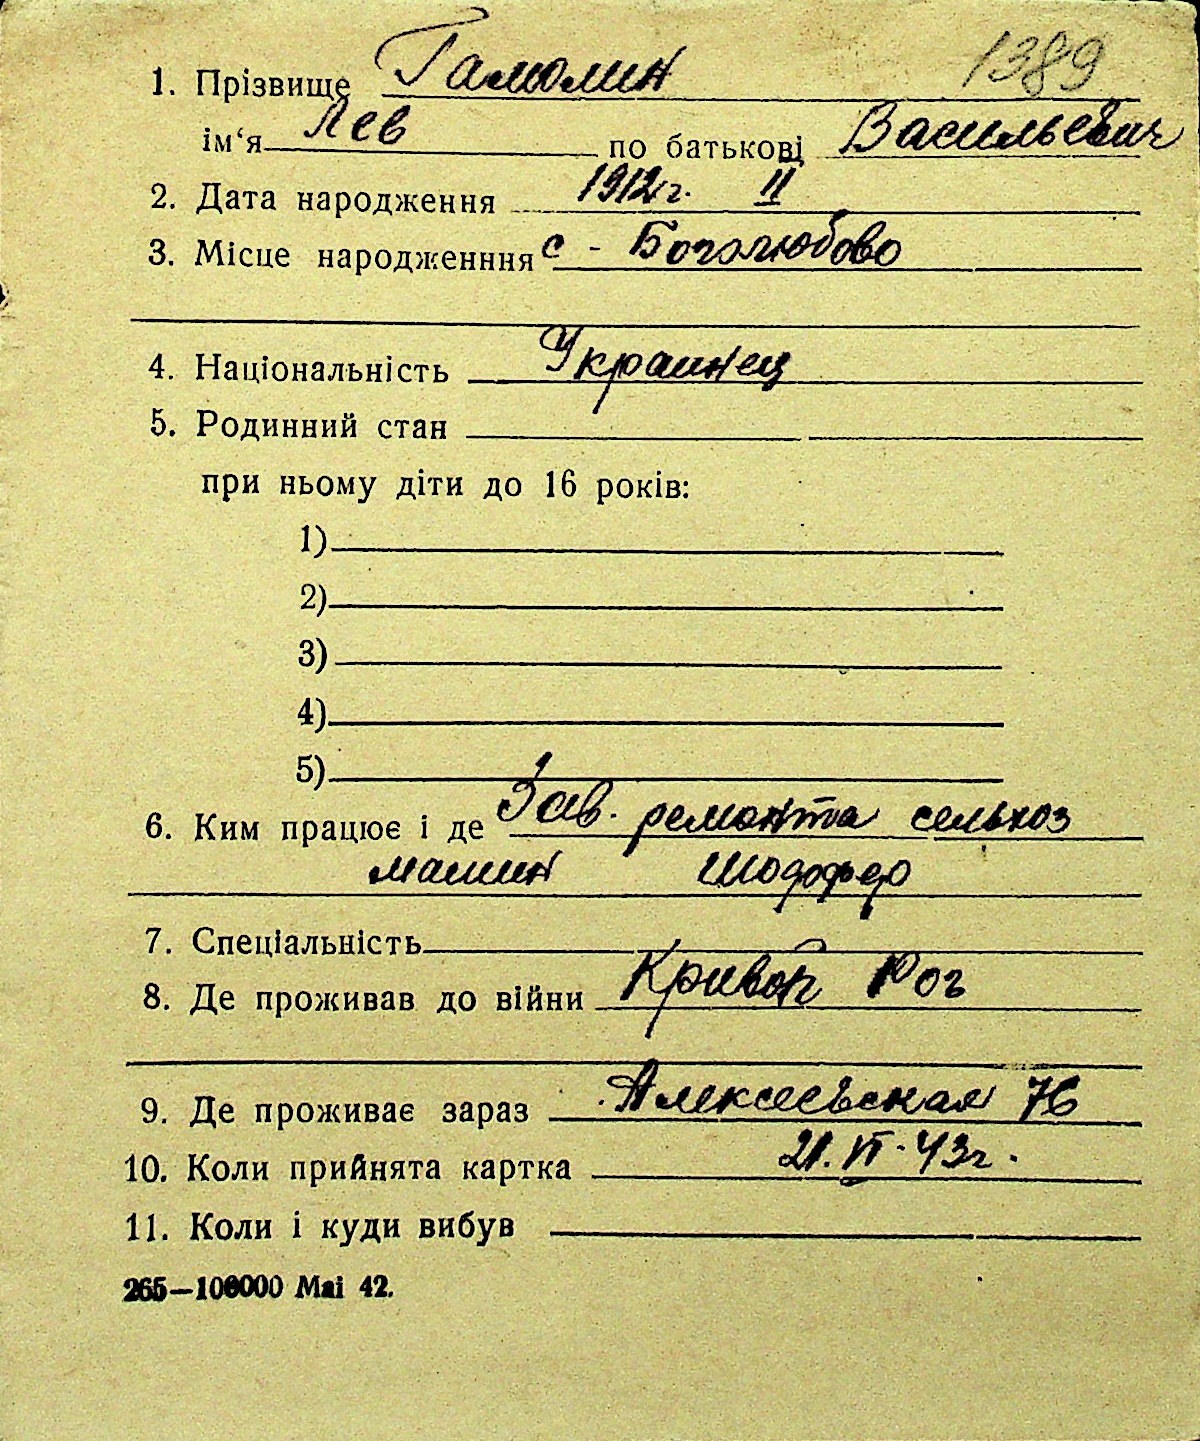 1389
1. Прізвище Гамолин
ім‘я Лев по батькові Васильевич
2. Дата народження 1912 г. II
3. Місце народженння с - Боголюбово
4. Національність Украинец
5. Родинний стан
при ньому діти до 16 років:
1)
2)
3)
4)
5)
6. Ким працює і де Зав. ремонта сельхоз
машин
7. Спеціальність
8. Де проживав до війни Кривой Рог
9. Де проживає зараз Алексеевская 76
10. Коли прийнята картка 21. VI. 43 г.
11. Коли і куди вибув
265—100000 Mai 42.